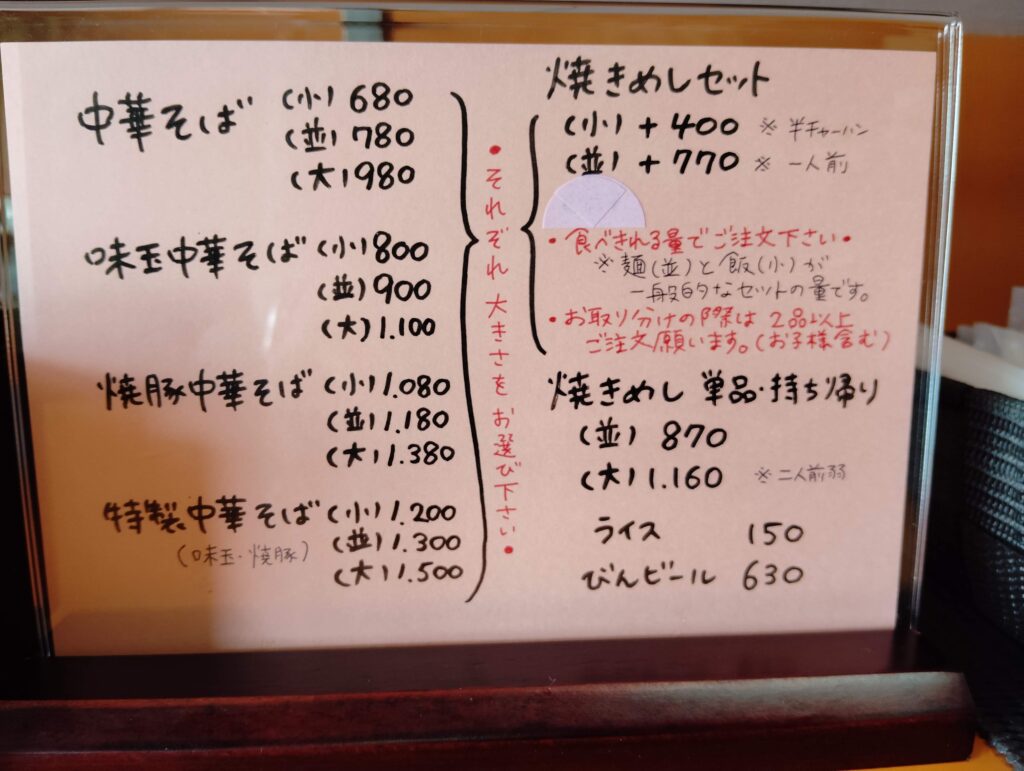 中華そば (小) 680
(並) 780
(大) 980
味玉中華そば (小) 800
(並) 900
(大) 1.100
焼豚中華そば (小) 1.080
(並) 1.180
(大) 1.380
特製中華そば (小) 1.200
(味玉・焼豚) (並) 1.300
(大) 1.500
・それぞれ大きさをお選び下さい・
焼きめしセット
(小) + 400 ※ 半チャーハン
(並) + 770 ※ 一人前
・食べきれる量でご注文下さい・
※ 麺(並)と飯(小)が
一般的なセットの量です。
・お取り分けの際は 2品以上
ご注文願います。(お子様含む)
焼きめし 単品・持ち帰り
(並) 870
(大) 1.160 ※ 二人前弱
ライス 150
びんビール 630